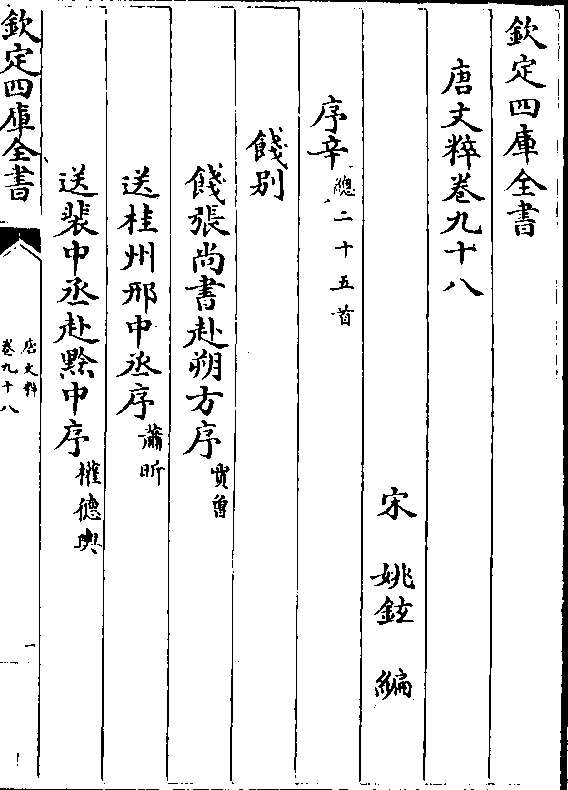 欽定四庫全書
唐文粹卷九十八
宋 姚鉉 編
序辛 總二十五首
餞别
餞張尚書赴朔方序 賈曾
送桂州邢中丞序 蕭昕
送裴中丞赴黔中序 權德輿
欽定四庫全書
唐文粹
卷九十八
一